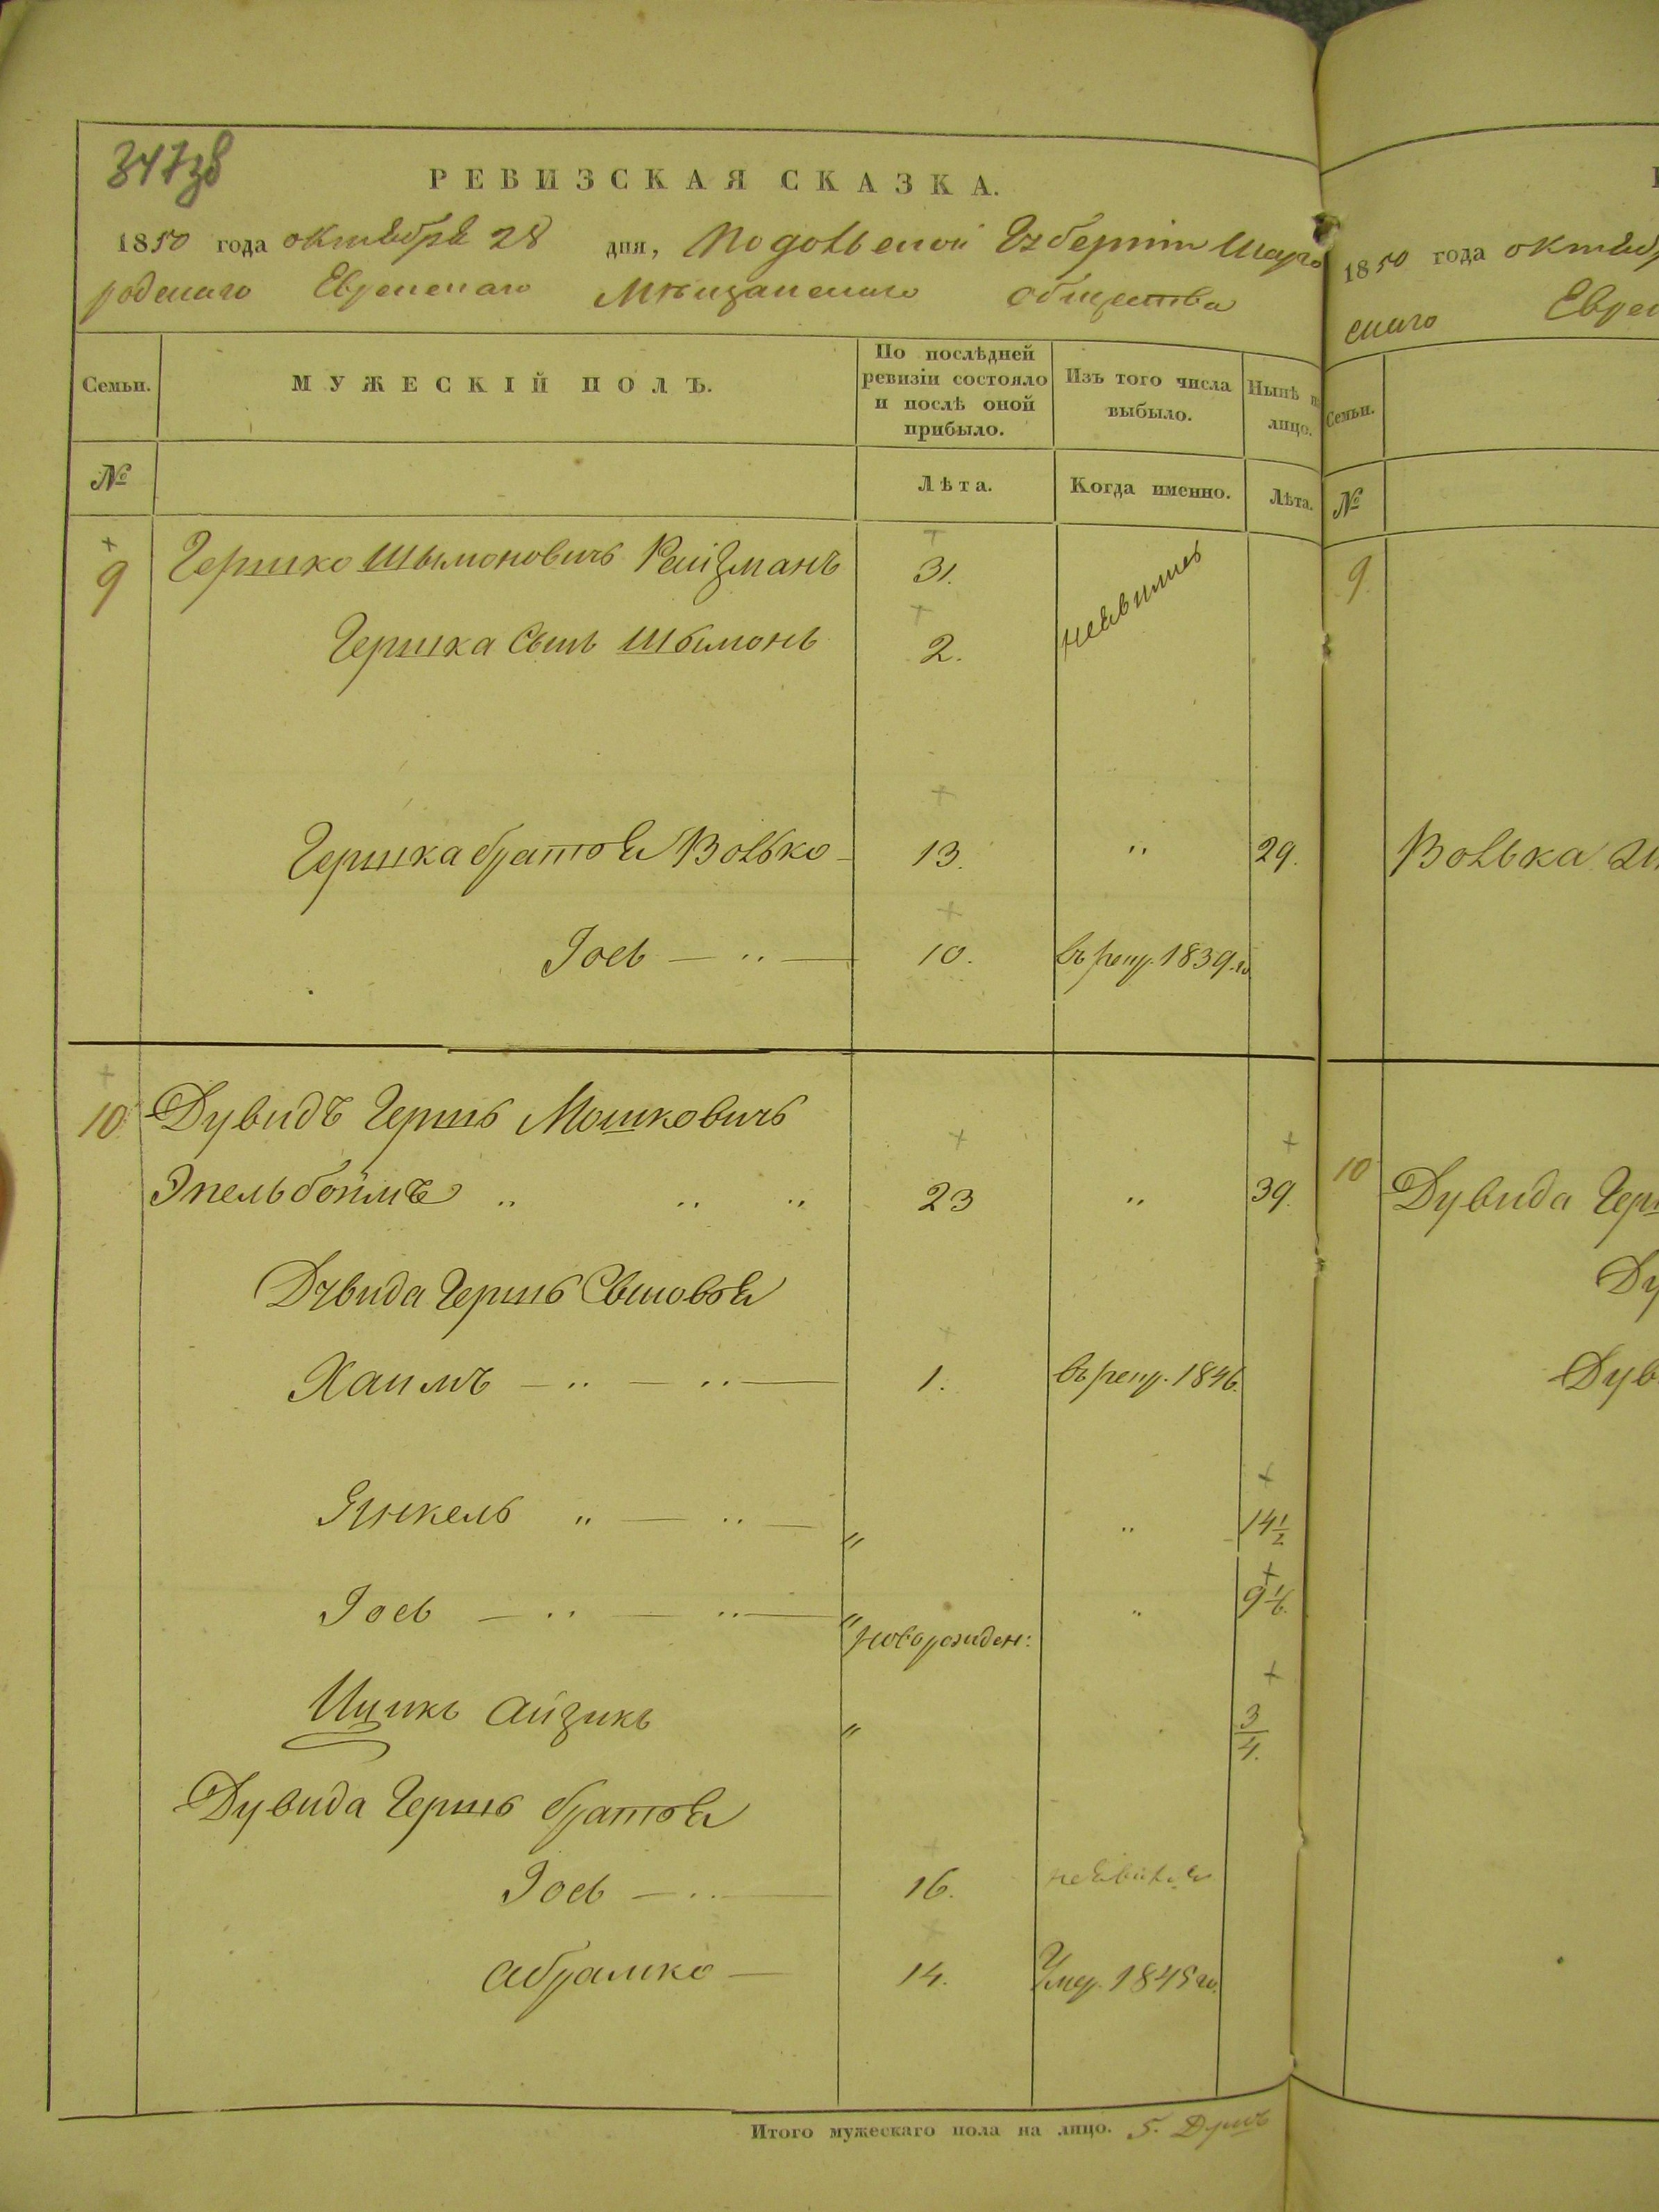 347 зв
РЕВИЗСКАЯ СКАЗКА.
1850 года октября 28 дня, Подольской Губерніи Шарго
родскаго Еврейскаго Мѣщанскаго общества
Семьи. МУЖЕСКІЙ ПОЛЪ. По послѣдней ревизіи состояло и послѣ оной прибыло. Изъ того числа выбыло. Нынѣ на лицо.
№ Лѣта. Когда именно. Лѣта.
9 Гершко Шымоновичъ Рейзманъ 31. неявились
Гершка Сынъ Шымонъ 2.
Гершка братья Волько 13. " 29.
Іось — " — 10. въ рекр. 1839.го
10 Дувидъ Гершъ Мошковичъ
Эпельбоймъ " " " 23 " 39.
Дувида Гершъ Сыновья
Хаимъ — " — " — 1. въ рекр. 1846.
Янкель " — " — " " 14 1/2
Іось — " — " — " новорожден: " 9 1/6.
Ицикъ Айзикъ " 3/4.
Дувида Гершъ братья
Іось — " — 16. неявился
Абрамко — 14. Умер. 1845 го.
Итого мужескаго пола на лицо. 5. Душъ
1850 года октяб
скаго Еврей
Семьи.
№
9.
Волька
10 Дувида Герш
Ду
Дув